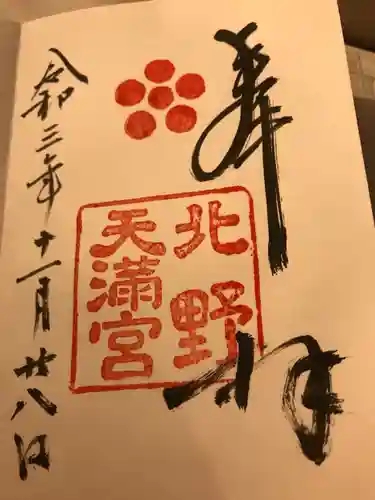 奉拝
北野
天満宮
令和三年十一月廿八日